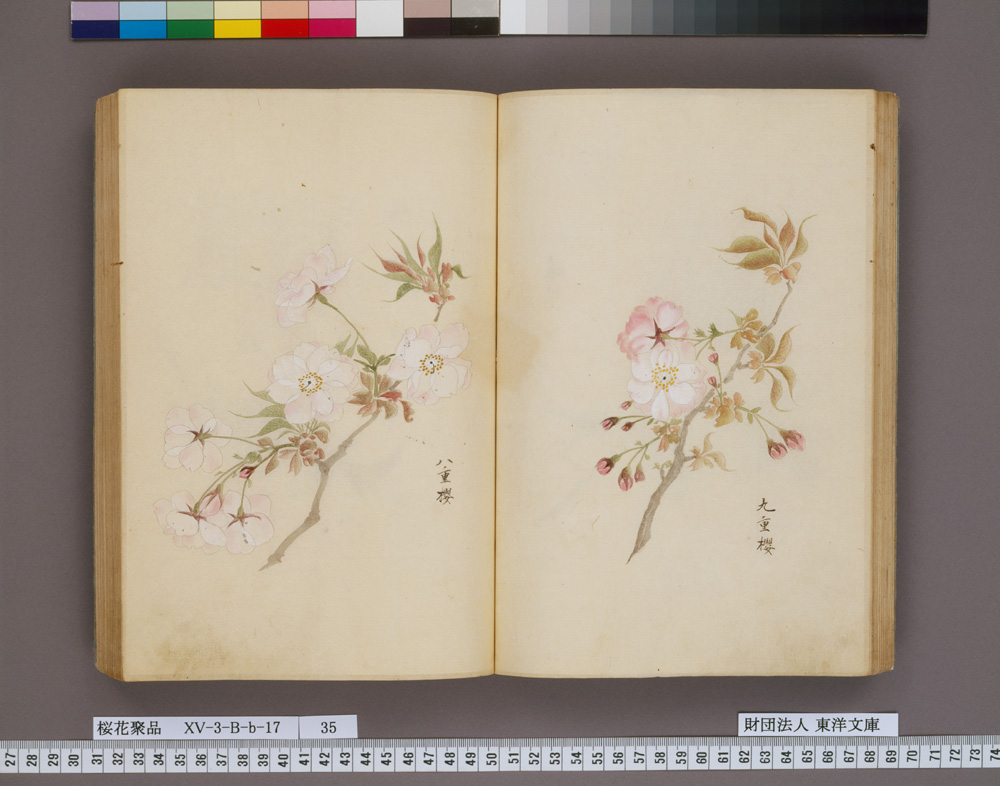 九重櫻
八重櫻
桜花聚品 XV-3-B-b-17 35
財団法人 東洋文庫
27 28 29 30 31 32 33 34 35 36 37 38 39 40 41 42 43 44 45 46 47 48 49 50 51 52 53 54 55 56 57 58 59 60 61 62 63 64 65 66 67 68 69 70 71 72 73 74